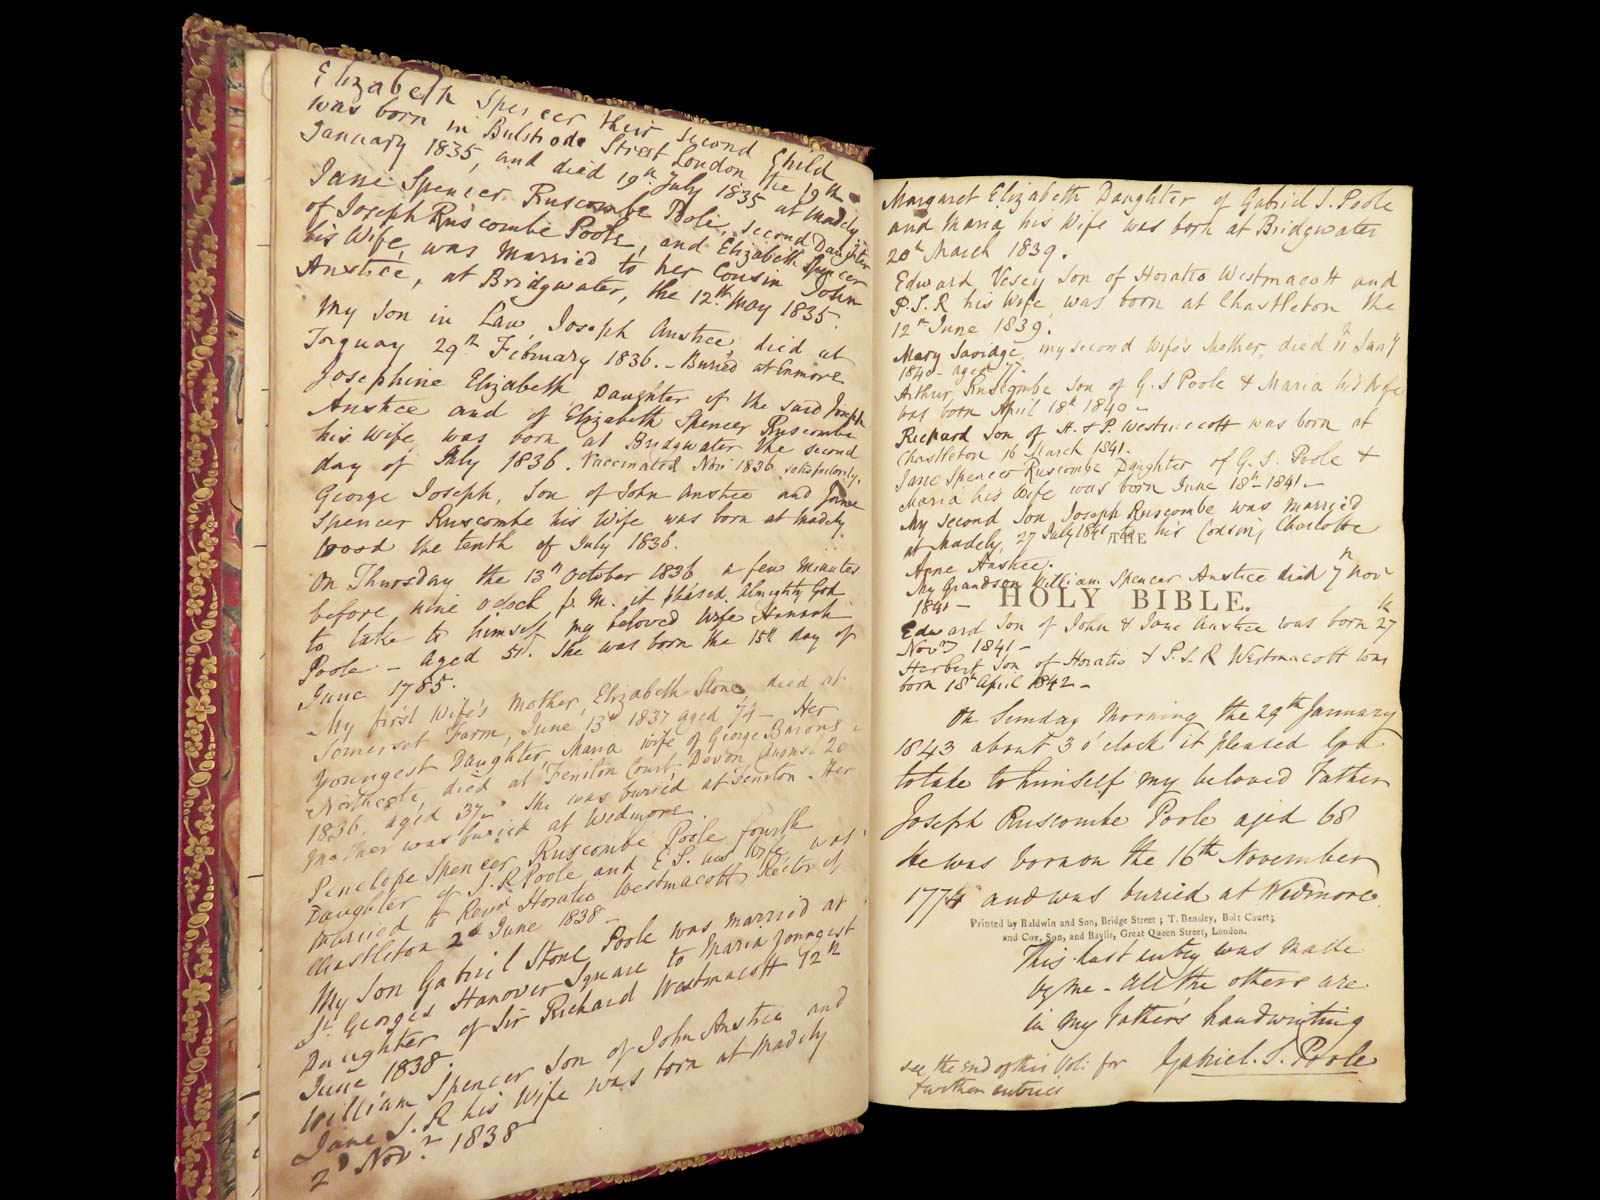 Elizabeth Spencer their second Child
was born in Bulstrode Street London the 19th
January 1835, and died 19th July 1835 at Madely
Jane Spencer Ruscombe Poole, second Daughter
of Joseph Ruscombe Poole, and Elizabeth Spencer
his Wife, was married to her Cousin John
Anstice, at Bridgwater, the 12th May 1835.
My Son in Law, Joseph Anstice, died at
Torquay 29th February 1836. - Buried at Enmore
Josephine Elizabeth Daughter of the said Joseph
Anstice and of Elizabeth Spencer Ruscombe
his Wife, was born at Bridgwater the second
day of July 1836. Vaccinated Novr 1836 satisfactorily.
George Joseph, Son of John Anstice and Jane
Spencer Ruscombe his Wife was born at Madely
Wood the tenth of July 1836.
On Thursday the 13th October 1836 a few minutes
before nine o'clock p.m. it pleased Almighty God
to take to himself my beloved Wife Hannah
Poole - aged 51. She was born the 15th day of
June 1785.
My first Wife's Mother, Elizabeth Stone, died at
Somerset Farm, June 13th 1837 aged 74 - Her
youngest Daughter, Maria wife of George Barons
Northcote, died at Feniton Court, Devon, August 20
1836, aged 37. She was buried at Feniton. Her
Mother was buried at Wedmore.
Penelope Spencer Ruscombe Poole fourth
Daughter of J. R Poole and E S. his Wife, was
married to Revd Horatio Westmacott Rector of
Chastleton 2d June 1838 -
My Son Gabriel Stone Poole was married at
St Georges Hanover Square to Maria youngest
Daughter of Sir Richard Westmacott 12th
June 1838.
William Spencer Son of John Anstice and
Jane S. R his Wife was born at Madely
2d Novr 1838
Margaret Elizabeth Daughter of Gabriel S. Poole
and Maria his Wife was born at Bridgwater
20th March 1839.
Edward Vesey Son of Horatio Westmacott and
P.S.R his Wife, was born at Chastleton the
12th June 1839.
Mary Savidge, my second Wife's Mother, died 11th Jany
1840 - aged 77.
Arthur Ruscombe Son of G. S Poole & Maria his Wife
was born April 18th 1840 -
Richard Son of H. & P. Westmacott was born at
Chastleton 16 March 1841.
Jane Spencer Ruscombe Daughter of G. S. Poole &
Maria his Wife was born June 18th 1841 -
My Second Son Joseph Ruscombe was married
at Madely, 27 July 1841 to his Cousin, Charlotte
THE
Anne Anstice.
My Grandson William Spencer Anstice died 7th Novr
1841 -
HOLY BIBLE.
Edward Son of John & Jane Anstice was born 27th
Novr 1841 -
Herbert Son of Horatio & P. S. R Westmacott was
born 18th April 1842 -
On Sunday Morning the 29th January
1843 about 3 o'clock it pleased God
to take to himself my beloved Father
Joseph Ruscombe Poole aged 68
He was born on the 16th November
1774 and was buried at Wedmore.
Printed by Baldwin and Son, Bridge Street; T. Bensley, Bolt Court;
and Cox, Son, and Baylis, Great Queen Street, London.
This last entry was made
by me - all the others are
in my Father's handwriting
Gabriel. S. Poole
see the End of this Vol: for
further entries